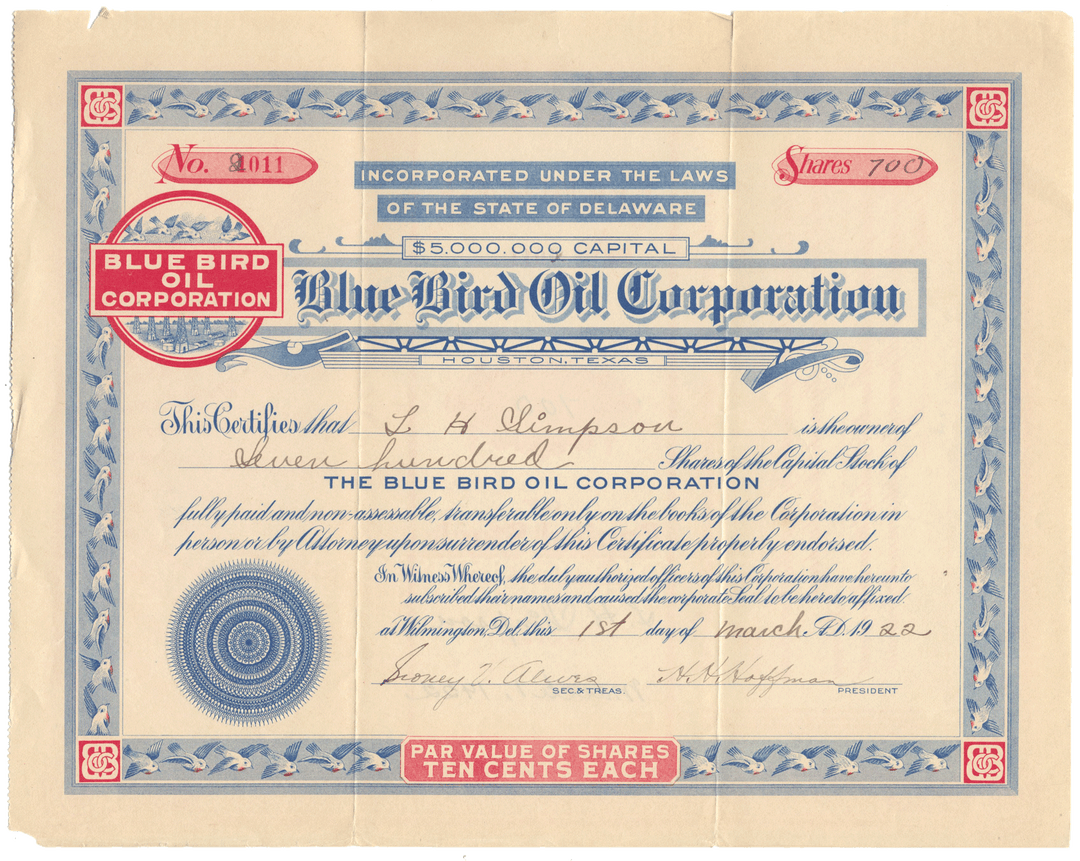 No. 1011
Shares 700
INCORPORATED UNDER THE LAWS
OF THE STATE OF DELAWARE
$5.000.000 CAPITAL
BLUE BIRD
OIL
CORPORATION
Blue Bird Oil Corporation
HOUSTON, TEXAS
This Certifies that L H Simpson is the owner of
Seven hundred Shares of the Capital Stock of
THE BLUE BIRD OIL CORPORATION
fully paid and non-assessable, transferable only on the books of the Corporation in
person or by Attorney upon surrender of this Certificate properly endorsed.
In Witness Whereof, the duly authorized officers of this Corporation have hereunto
subscribed their names and caused the corporate Seal to be hereto affixed
at Wilmington, Del. this 1st day of March A.D. 1922
Sidney V. H. H. Hoffman
SEC. & TREAS. PRESIDENT
PAR VALUE OF SHARES
TEN CENTS EACH